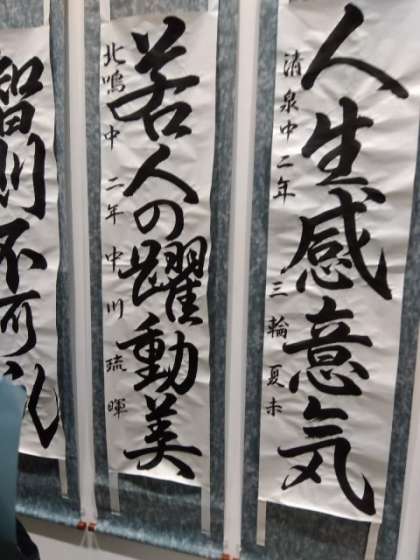 人生感意気
清泉中二年 三輪夏未
若人の躍動美
北鳴中 二年 中川琉暉
不可